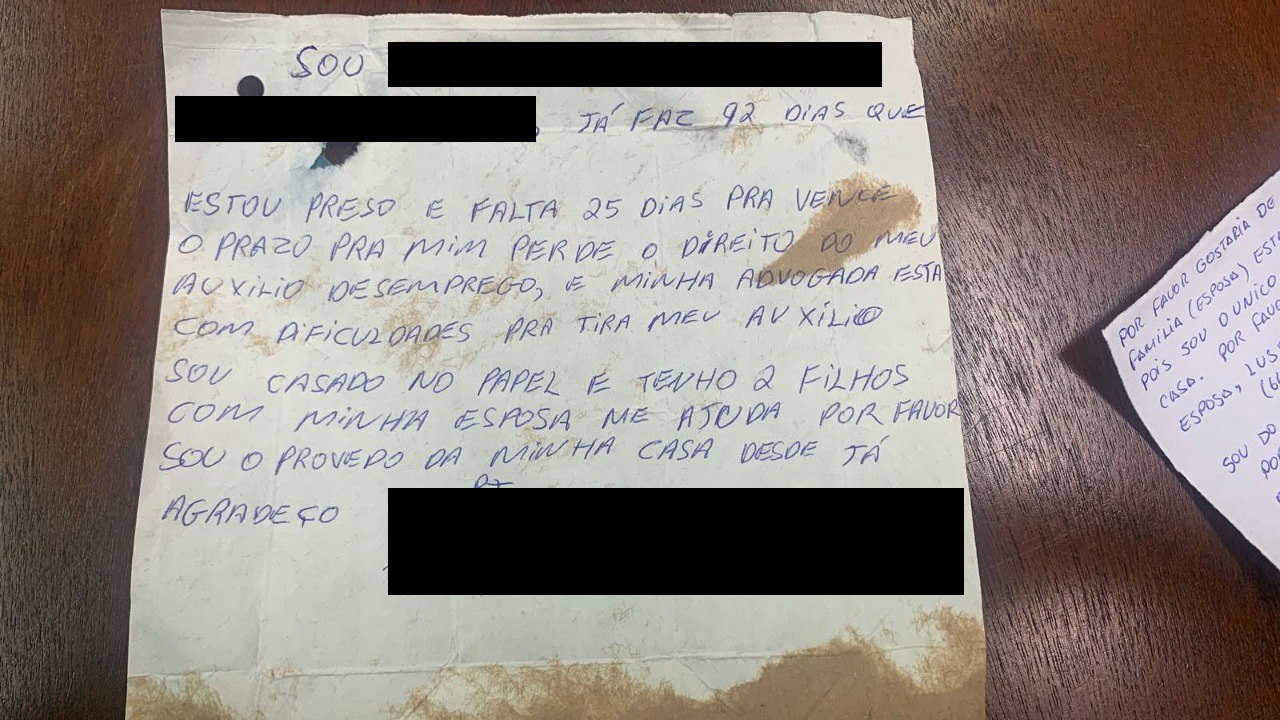 SOU
JÁ FAZ 92 DIAS QUE
ESTOU PRESO E FALTA 25 DIAS PRA VENCE
O PRAZO PRA MIM PERDE O DIREITO DO MEU
AUXILIO DESEMPREGO, E MINHA ADVOGADA ESTA
COM DIFICULDADES PRA TIRA MEU AUXÍLIO
SOU CASADO NO PAPEL E TENHO 2 FILHOS
COM MINHA ESPOSA ME AJUDA POR FAVOR
SOU O PROVEDO DA MINHA CASA DESDE JÁ
AGRADEÇO
POR FAVOR GOSTARIA DE
FAMILIA (ESPOSA) ESTA
POIS SOU O UNICO
CASA. POR
ESPOSA,
SOU DO